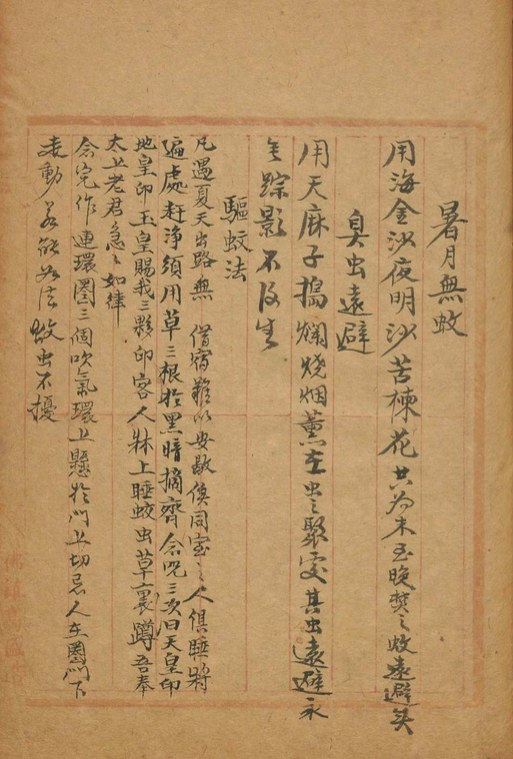 暑月無蚊
用海金沙夜明沙苦楝花共為末至晚焚之蚊遠避矣
臭虫遠避
用天麻子搗爛燒烟薰在虫之聚處其虫遠避永
無踪影不復生
驅蚊法
凡遇夏天出路無 借宿難以安歇俟同室之人俱睡將
遍處赶净須用草三根於黑暗摘齊念咒三次曰天皇印
地皇印玉皇賜我三夥印客人牀上睡蚊虫草裏蹲吾奉
太上老君急〻如律
念完作連環圈三個吹氣環上懸於門上切忌人在圈門下
走動若能如法蚊虫不擾